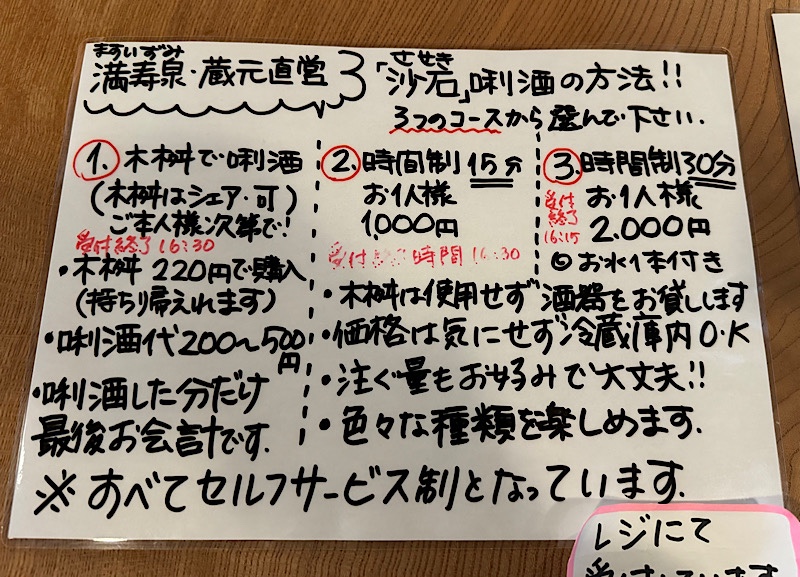 ますいずみ
満寿泉・蔵元直営
させき
「沙石」唎酒の方法!!
3つのコースから選んで下さい.
1. 木桝で唎酒
(木桝はシェア・可)
ご本人様次第で!
受付終了16:30
・木桝 220円で購入
(持ち帰えれます)
・唎酒代200〜500円
・唎酒した分だけ
最後お会計です.
2. 時間制 15分
お1人様
1,000円
受付終了時間 16:30
3. 時間制30分
お1人様
2,000円
受付終了16:15
◎お水1本付き
・木桝は使用せず 酒器をお貸しします
・価格は気にせず冷蔵庫内O・K
・注ぐ量もお好みで大丈夫!!
・色々な種類を楽しめます.
※すべてセルフサービス制となっています.
レジにて